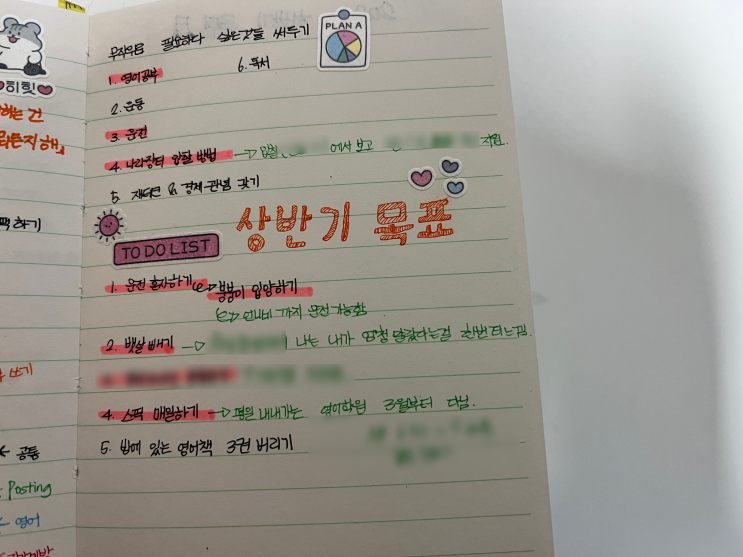 히힛
하는 건
뭐든지해」
쓰기
← 공통
Posting
← 영어
PLAN A
무작위로 필요하다 싶은것들 써두기
1. 영어공부
6. 독서
2. 운동
3. 운전
4. 나라장터 입찰 방법 → 에서 보고 지원.
5. 재테크 & 경제관념 갖기
TO DO LIST
상반기 목표
1. 운전 혼자하기 붕붕이 입양하기
까지 운전 가능함
2. 뱃살 빼기 → 나는 내가 엄청 말랐다는걸 한번 더 느낌.
4. 스픽 매일하기 → 평일 내내가는 영어학원 3월부터 다님.
5. 방에 있는 영어책 3권 버리기